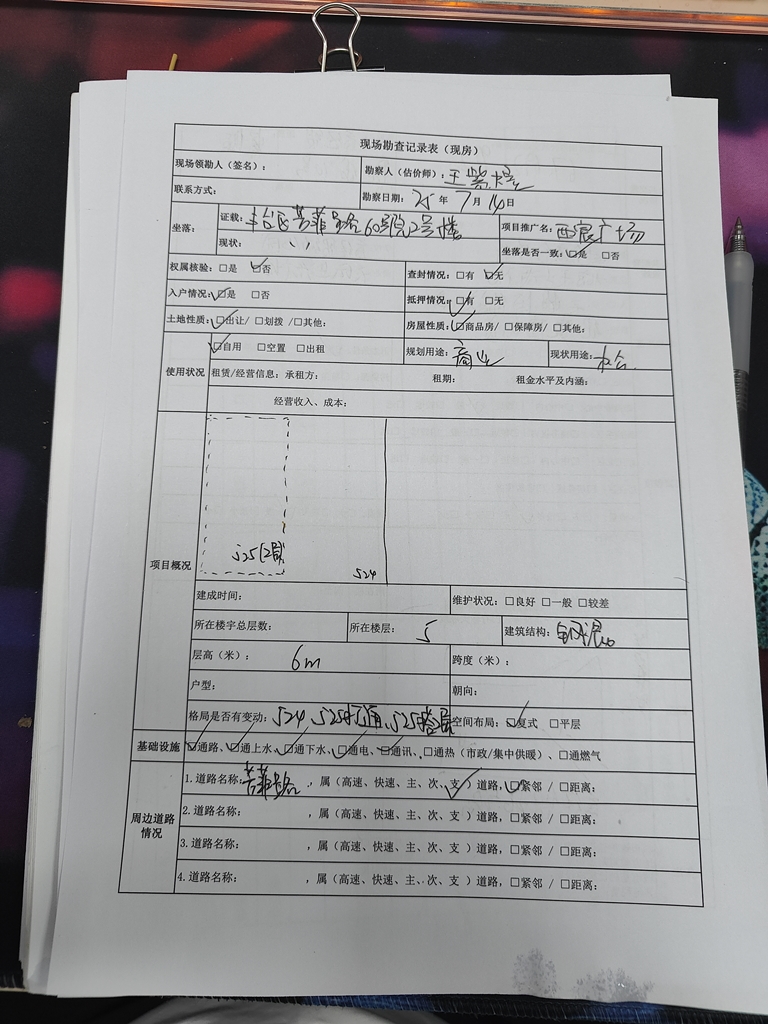 现场勘查记录表（现房）
现场领勘人（签名）： 勘察人（估价师）：王
联系方式： 勘察日期：25 年 7 月 14 日
坐落： 证载：丰台区菁菲路60号院2号楼 项目推广名：西宸广场
现状： 〃 坐落是否一致：☑是 □否
权属核验：□是 ☑否 查封情况：□有 ☑无
入户情况：☑是 □否 抵押情况：☑有 □无
土地性质：☑出让/ □划拨 /□其他： 房屋性质：☑商品房/ □保障房/ □其他：
使用状况 ☑自用 □空置 □出租 规划用途：商业 现状用途：办公
租赁/经营信息：承租方： 租期： 租金水平及内涵：
经营收入、成本：
项目概况
525(2层) 524
建成时间： 维护状况：□良好 □一般 □较差
所在楼宇总层数： 所在楼层：5 建筑结构：钢混
层高（米）：6m 跨度（米）：
户型： 朝向：
格局是否有变动：524、525打通、525搭层 空间布局：☑复式 □平层
基础设施 ☑通路、☑通上水、☑通下水、☑通电、☑通讯、□通热（市政/集中供暖）、□通燃气
周边道路情况 1.道路名称：菁菲路，属（高速、快速、主、次、支✓）道路，☑紧邻 / □距离：
2.道路名称： ，属（高速、快速、主、次、支 ）道路，□紧邻 / □距离：
3.道路名称： ，属（高速、快速、主、次、支 ）道路，□紧邻 / □距离：
4.道路名称： ，属（高速、快速、主、次、支 ）道路，□紧邻 / □距离：